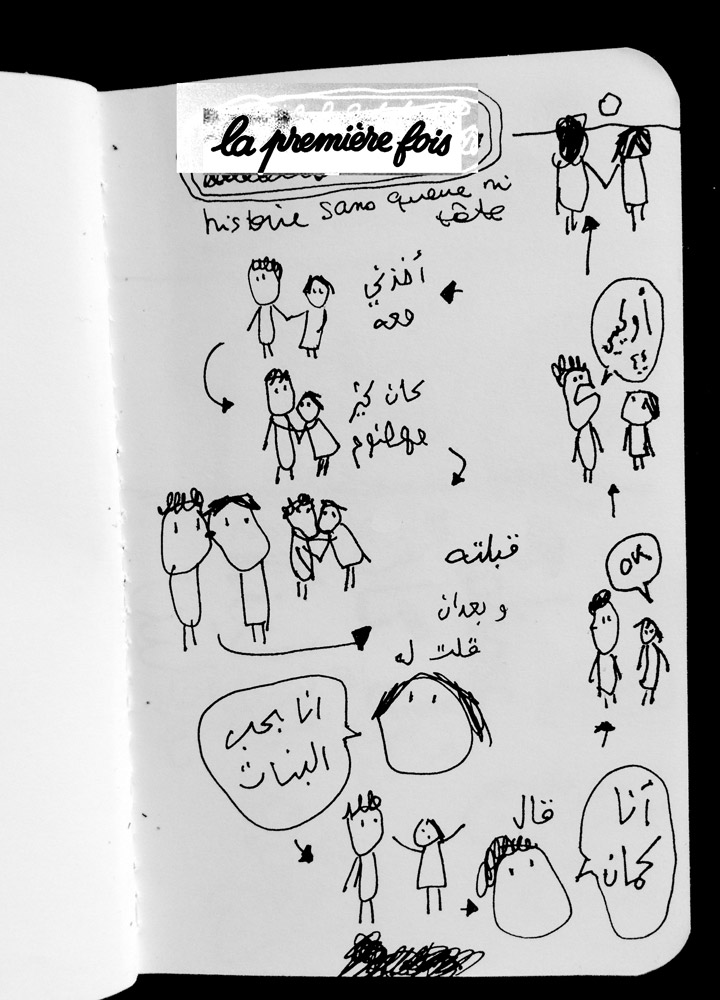 la première fois
histoire sans queue ni
tête
أخذني
معه
كان كتير
مهضوم
قبلته
و بعدان
قلت له
انا بحب
البنات
قال
أنا
كمان
OK
أوكي
؟؟